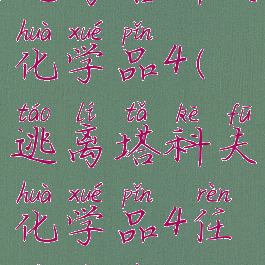 huà xué pǐn
化学品4(
táo lí tǎ kē fū
逃离塔科夫
huà xué pǐn rèn
化学品4任